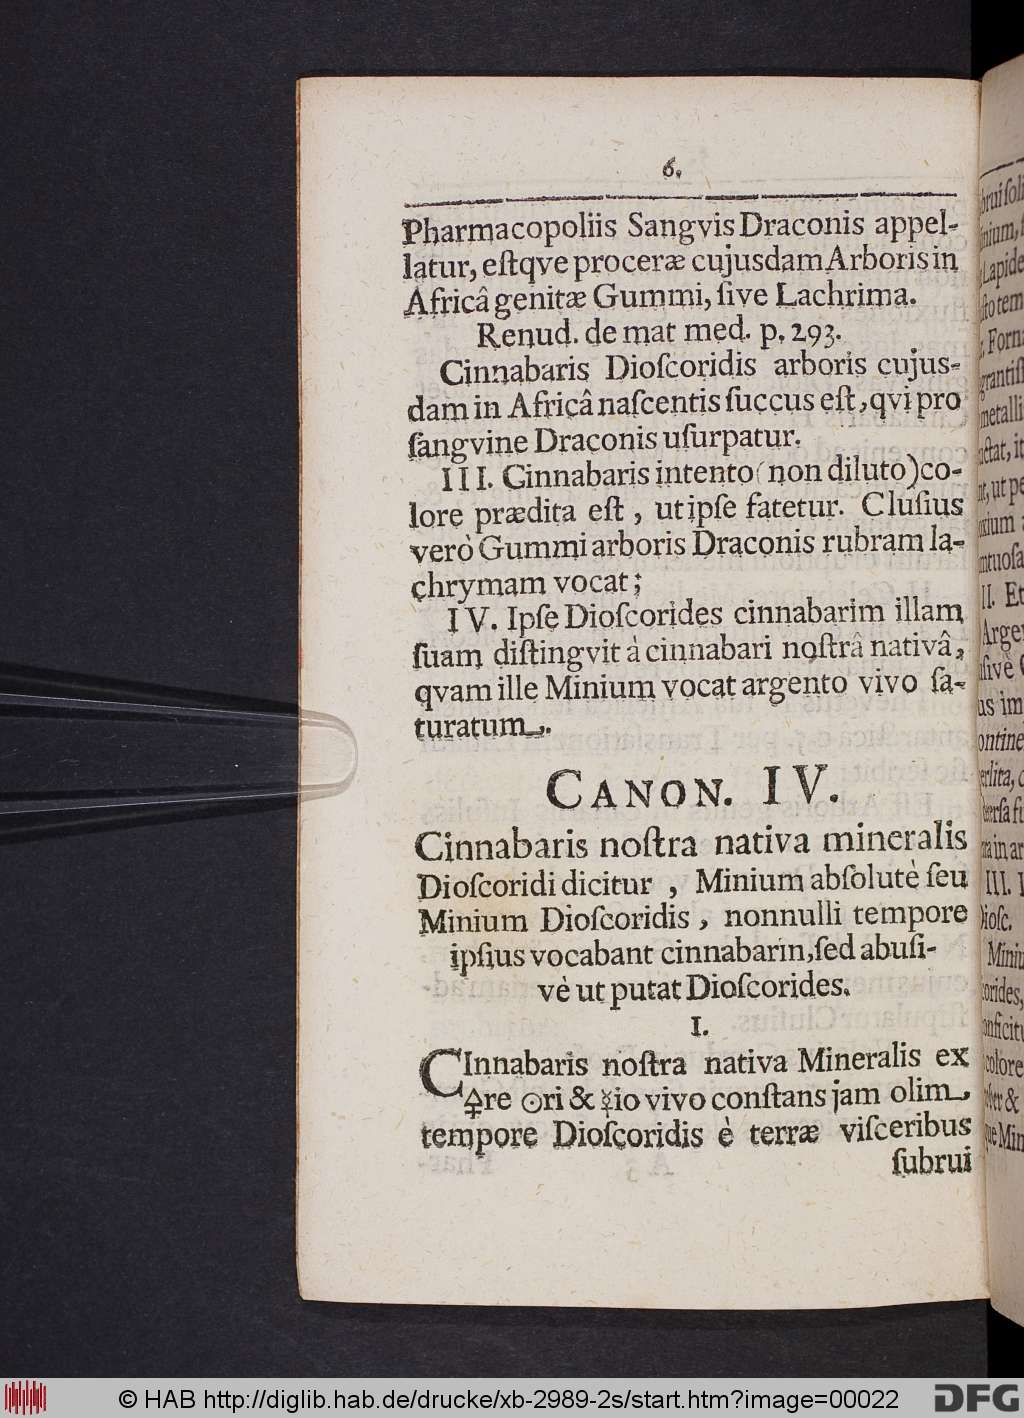 6.
Pharmacopoliis Sangvis Draconis appel-
latur, eſtqve proceræ cujusdam Arboris in
Africâ genitæ Gummi, ſive Lachrima.
Renud. de mat med. p. 293.
Cinnabaris Dioſcoridis arboris cujus-
dam in Africâ naſcentis ſuccus eſt, qvi pro
ſangvine Draconis uſurpatur.
III. Cinnabaris intento (non diluto) co-
lore prædita eſt, ut ipſe fatetur. Cluſius
verò Gummi arboris Draconis rubram la-
chrymam vocat;
IV. Ipſe Dioſcorides cinnabarim illam
ſuam diſtingvit à cinnabari noſtrâ nativâ,
qvam ille Minium vocat argento vivo ſa-
turatum.
CANON. IV.
Cinnabaris noſtra nativa mineralis
Dioſcoridi dicitur, Minium abſolutè ſeu
Minium Dioſcoridis, nonnulli tempore
ipſius vocabant cinnabarin, ſed abuſi-
vè ut putat Dioſcorides.
I.
CInnabaris noſtra nativa Mineralis ex
🜍re ☉ri & ☿io vivo conſtans jam olim
tempore Dioſcoridis è terræ viſceribus
ſubrui
© HAB http://diglib.hab.de/drucke/xb-2989-2s/start.htm?image=00022
DFG